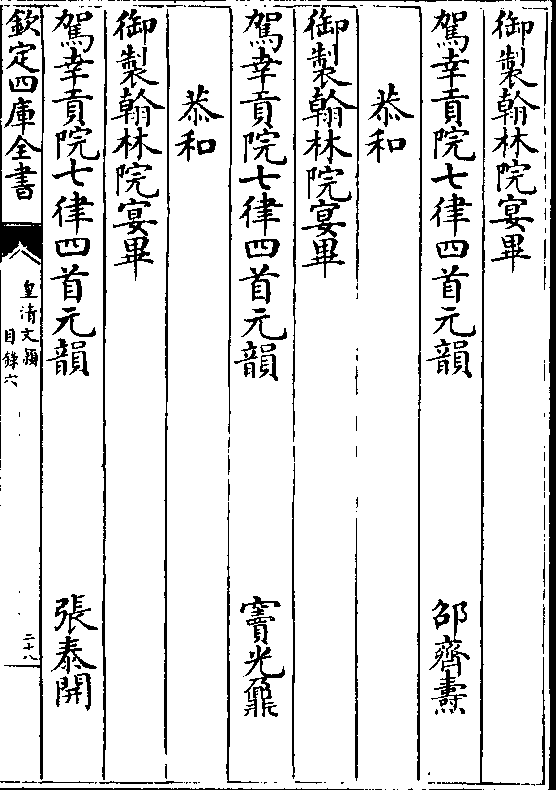 御製翰林院宴畢
駕幸貢院七律四首元韻 邵齊燾
恭和
御製翰林院宴畢
駕幸貢院七律四首元韻 竇光鼐
恭和
御製翰林院宴畢
駕幸貢院七律四首元韻 張泰開
欽定四庫全書
皇清文穎
目錄六
二十八